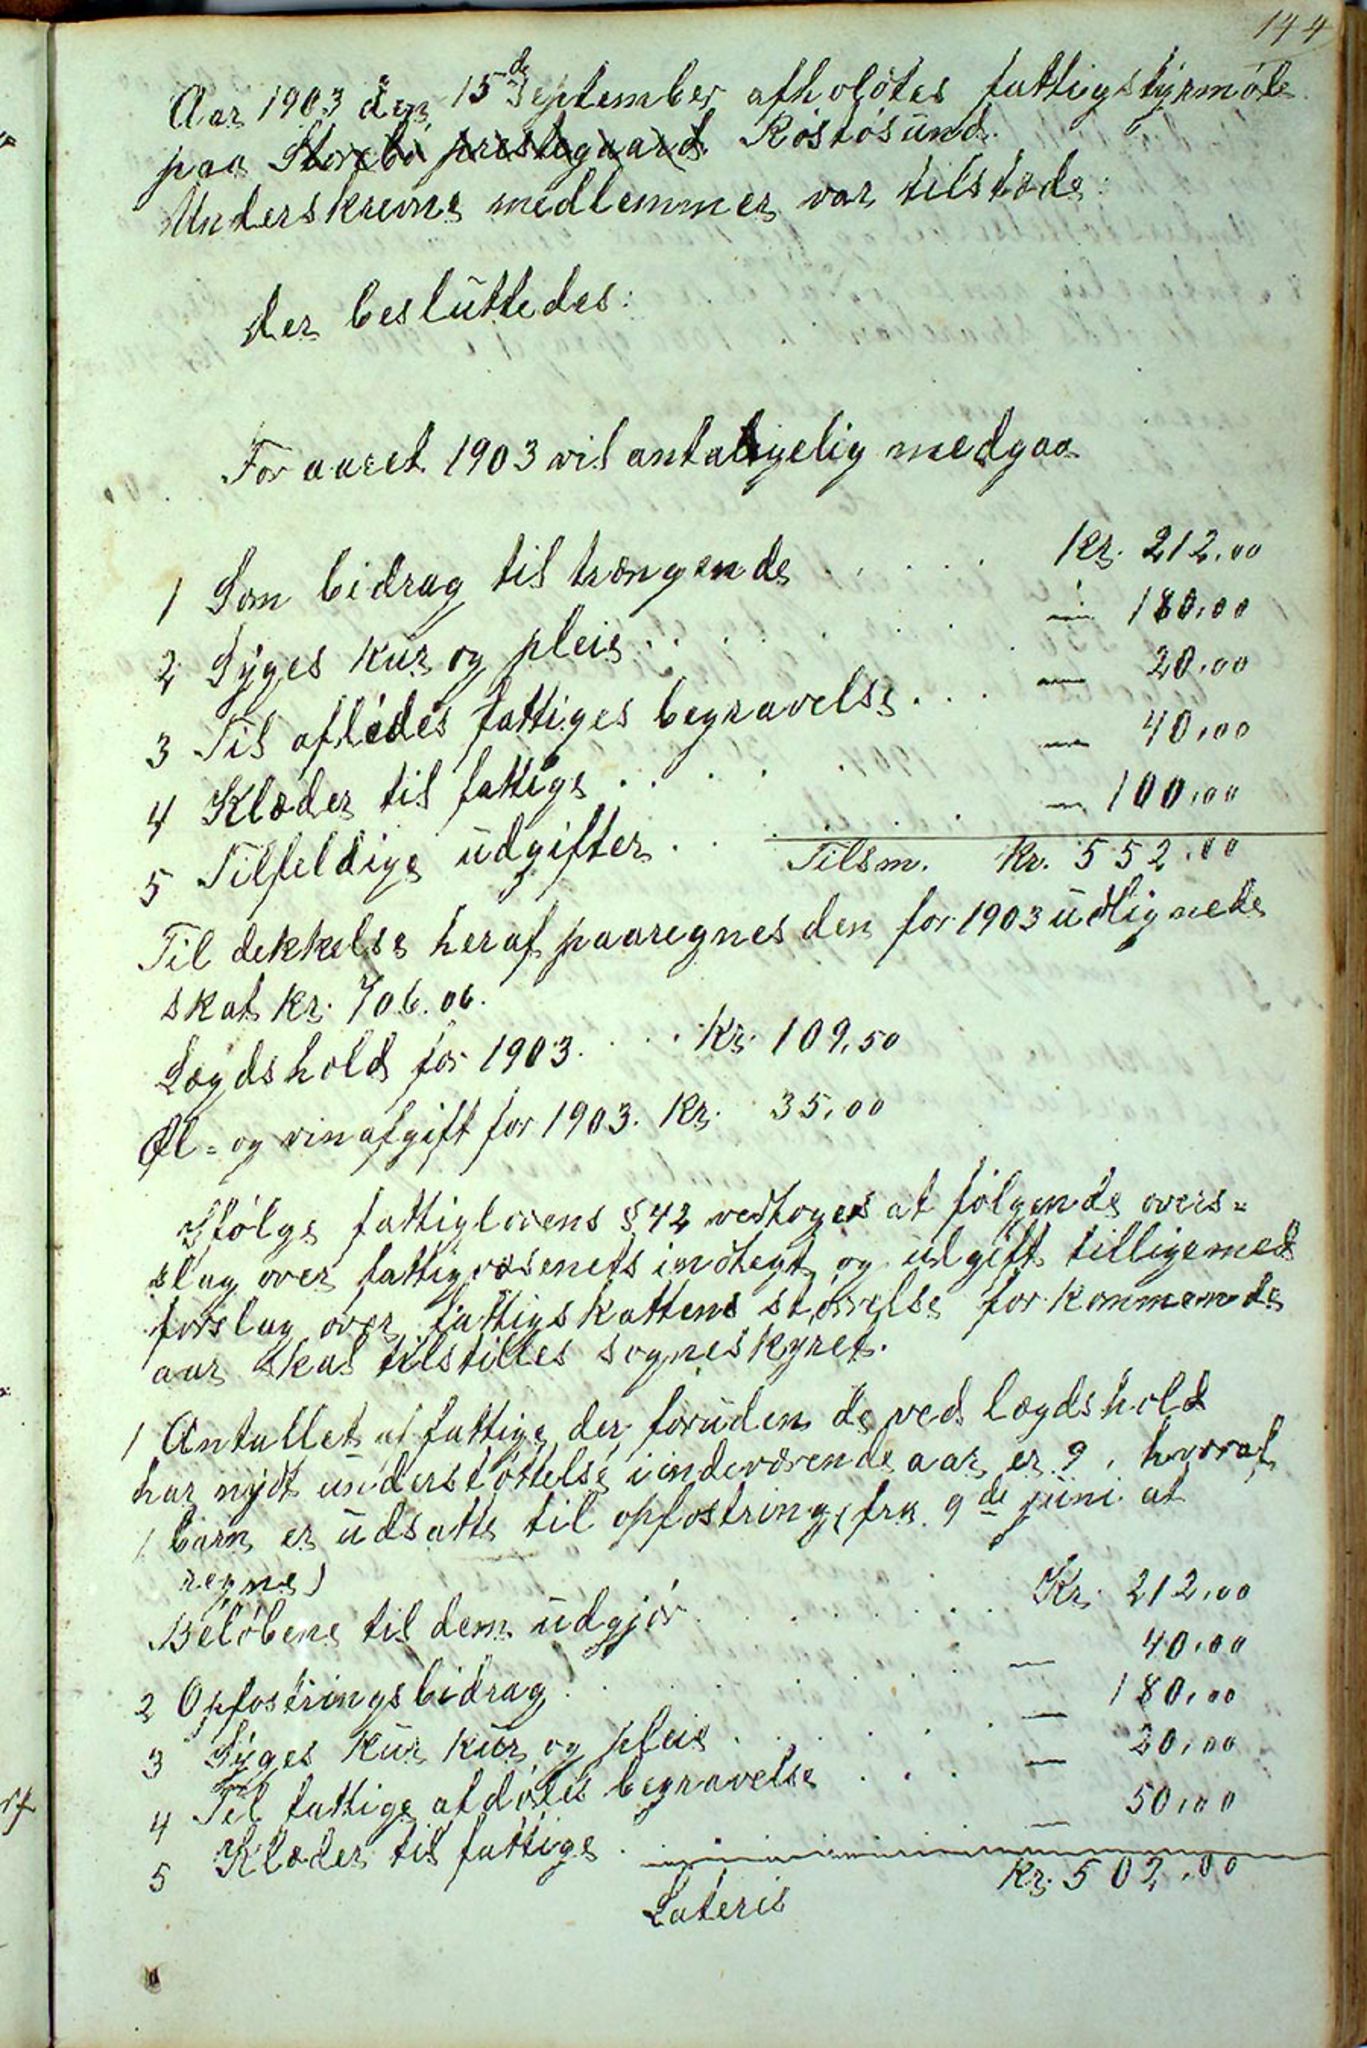 144
Aar 1903 den 15de September afholdtes fattigstyrmøte
paa Storebø prestegaard Röstösund.
Underskrevne medlemmer var tilstede:
der besluttedes:
For aaret 1903 vil antagelig medgaa
1 Som bidrag til trængende . . . . . Kr. 212,00
2 Syges kur og pleie . . . . . . — 180,00
3 Til afdødes fattiges begravelse . . . — 20,00
4 Klæder til fattige . . . . . — 40,00
5 Tilfeldige udgifter . . . . . — 100,00
Tilsm. Kr. 552,00
Til dekkelse heraf paaregnes den for 1903 udlignede
skat kr. 706.06.
Lægdshold for 1903 . . . . Kr. 109,50
Øl- og vinafgift for 1903. Kr. 35,00
Ifølge fattiglovens § 42 vedtoges at følgende overs=
slag over fattigvæsenets indtegt og udgift tilligemed
forslag over fattigskattens størrelse for kommende
aar skal tilstilles sogneskyret.
1 Antallet af fattige, der foruden de ved lægdshold
har nydt understøttelse i indeværende aar er 9, hvoraf
1 barn er udsatte til opfostring (fra 9de juni at
regne)
Beløbene til dem udgjør . . . . . . . Kr. 212,00
2 Opfostringsbidrag . . . . . . — 40,00
3 Syges kur kur og pleie . . . . . — 180,00
4 Til fattige afdødes begravelse . . . — 20,00
5 Klæder til fattige . — 50,00
Lateris Kr. 502,00